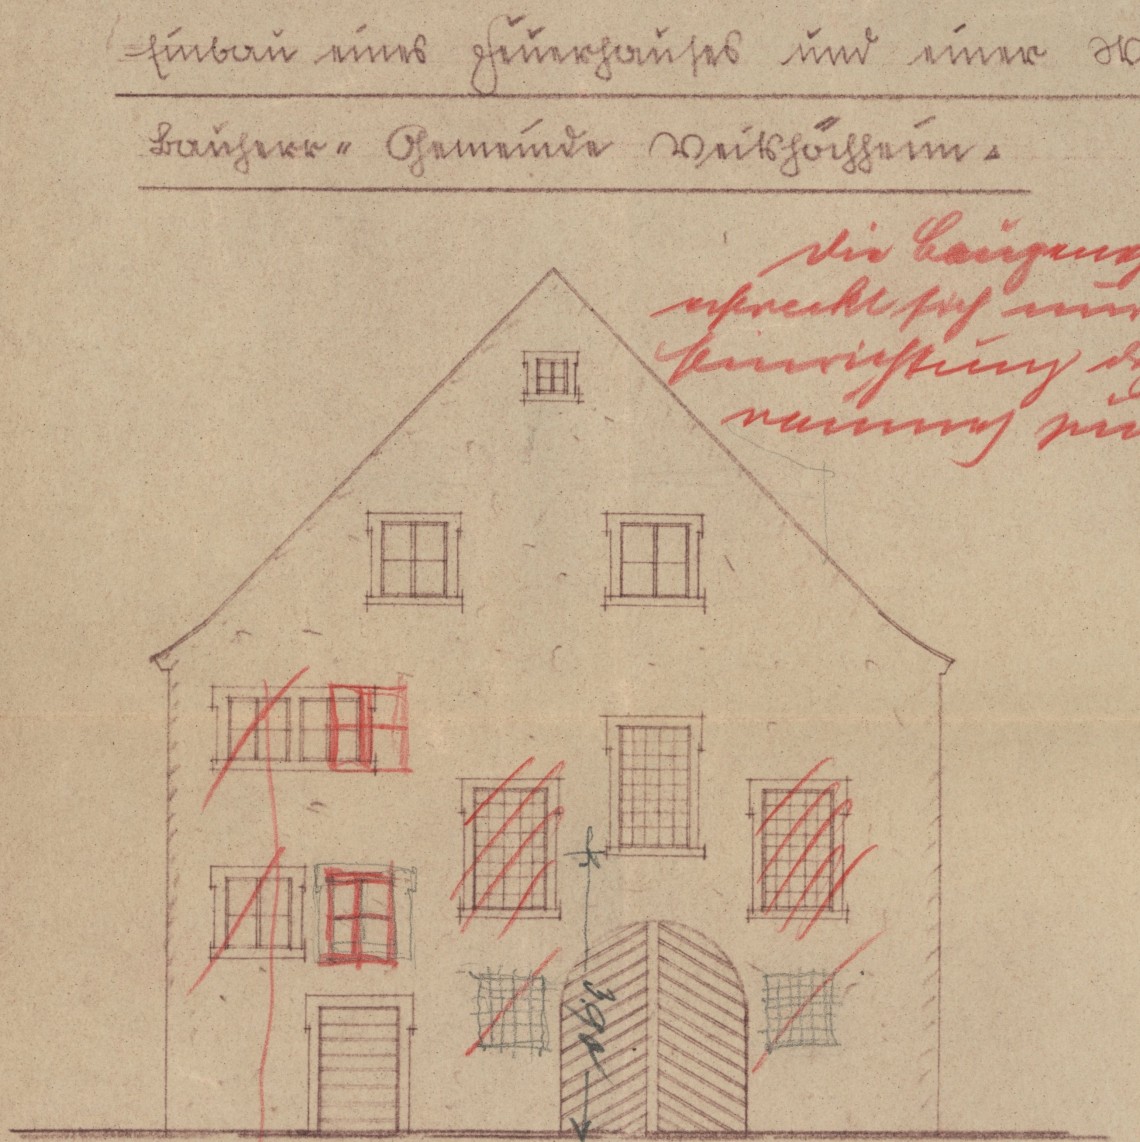 Einbau eines Feuerhauses und einer W
Bauherr = Gemeinde Veitshöchheim.
Die Baugeneh
erstreckt sich nur
Einrichtung d
raumes